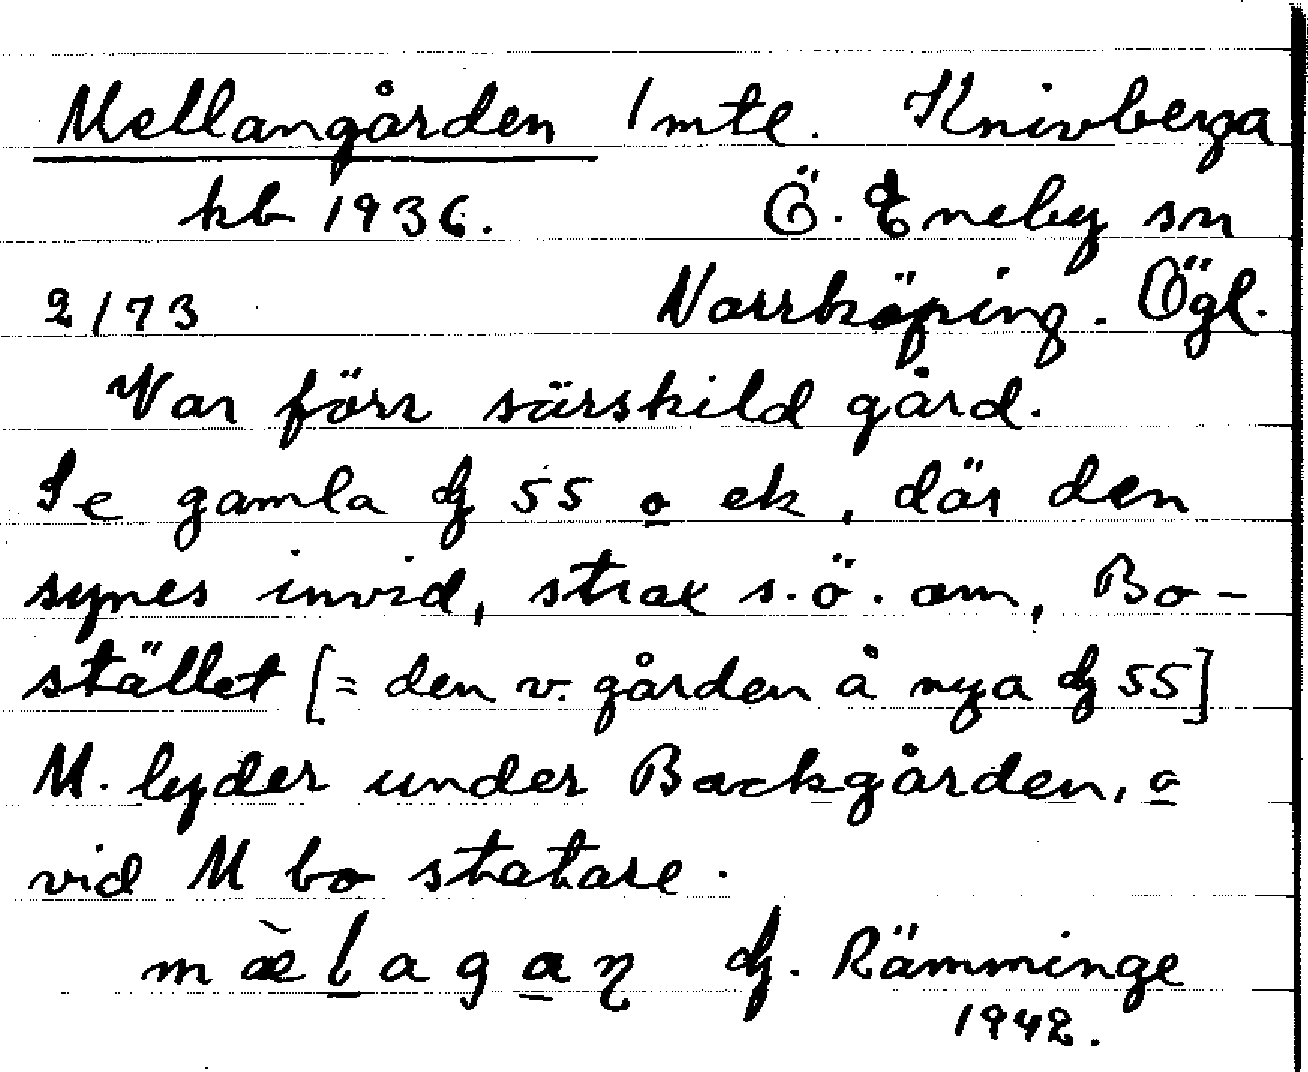 Mellangården 1 mtl. Knivberga
kb 1936. Ö. Eneby sn
2/73 Norrköping. Ögl.
Var förr särskild gård.
Se gamla 55 o ek, där den
synes invid, strax s.ö. om, Bo-
stället [= den v. gården å nya 55]
M. lyder under Backgården, o
vid M bo statare.
Rämminge
1942.